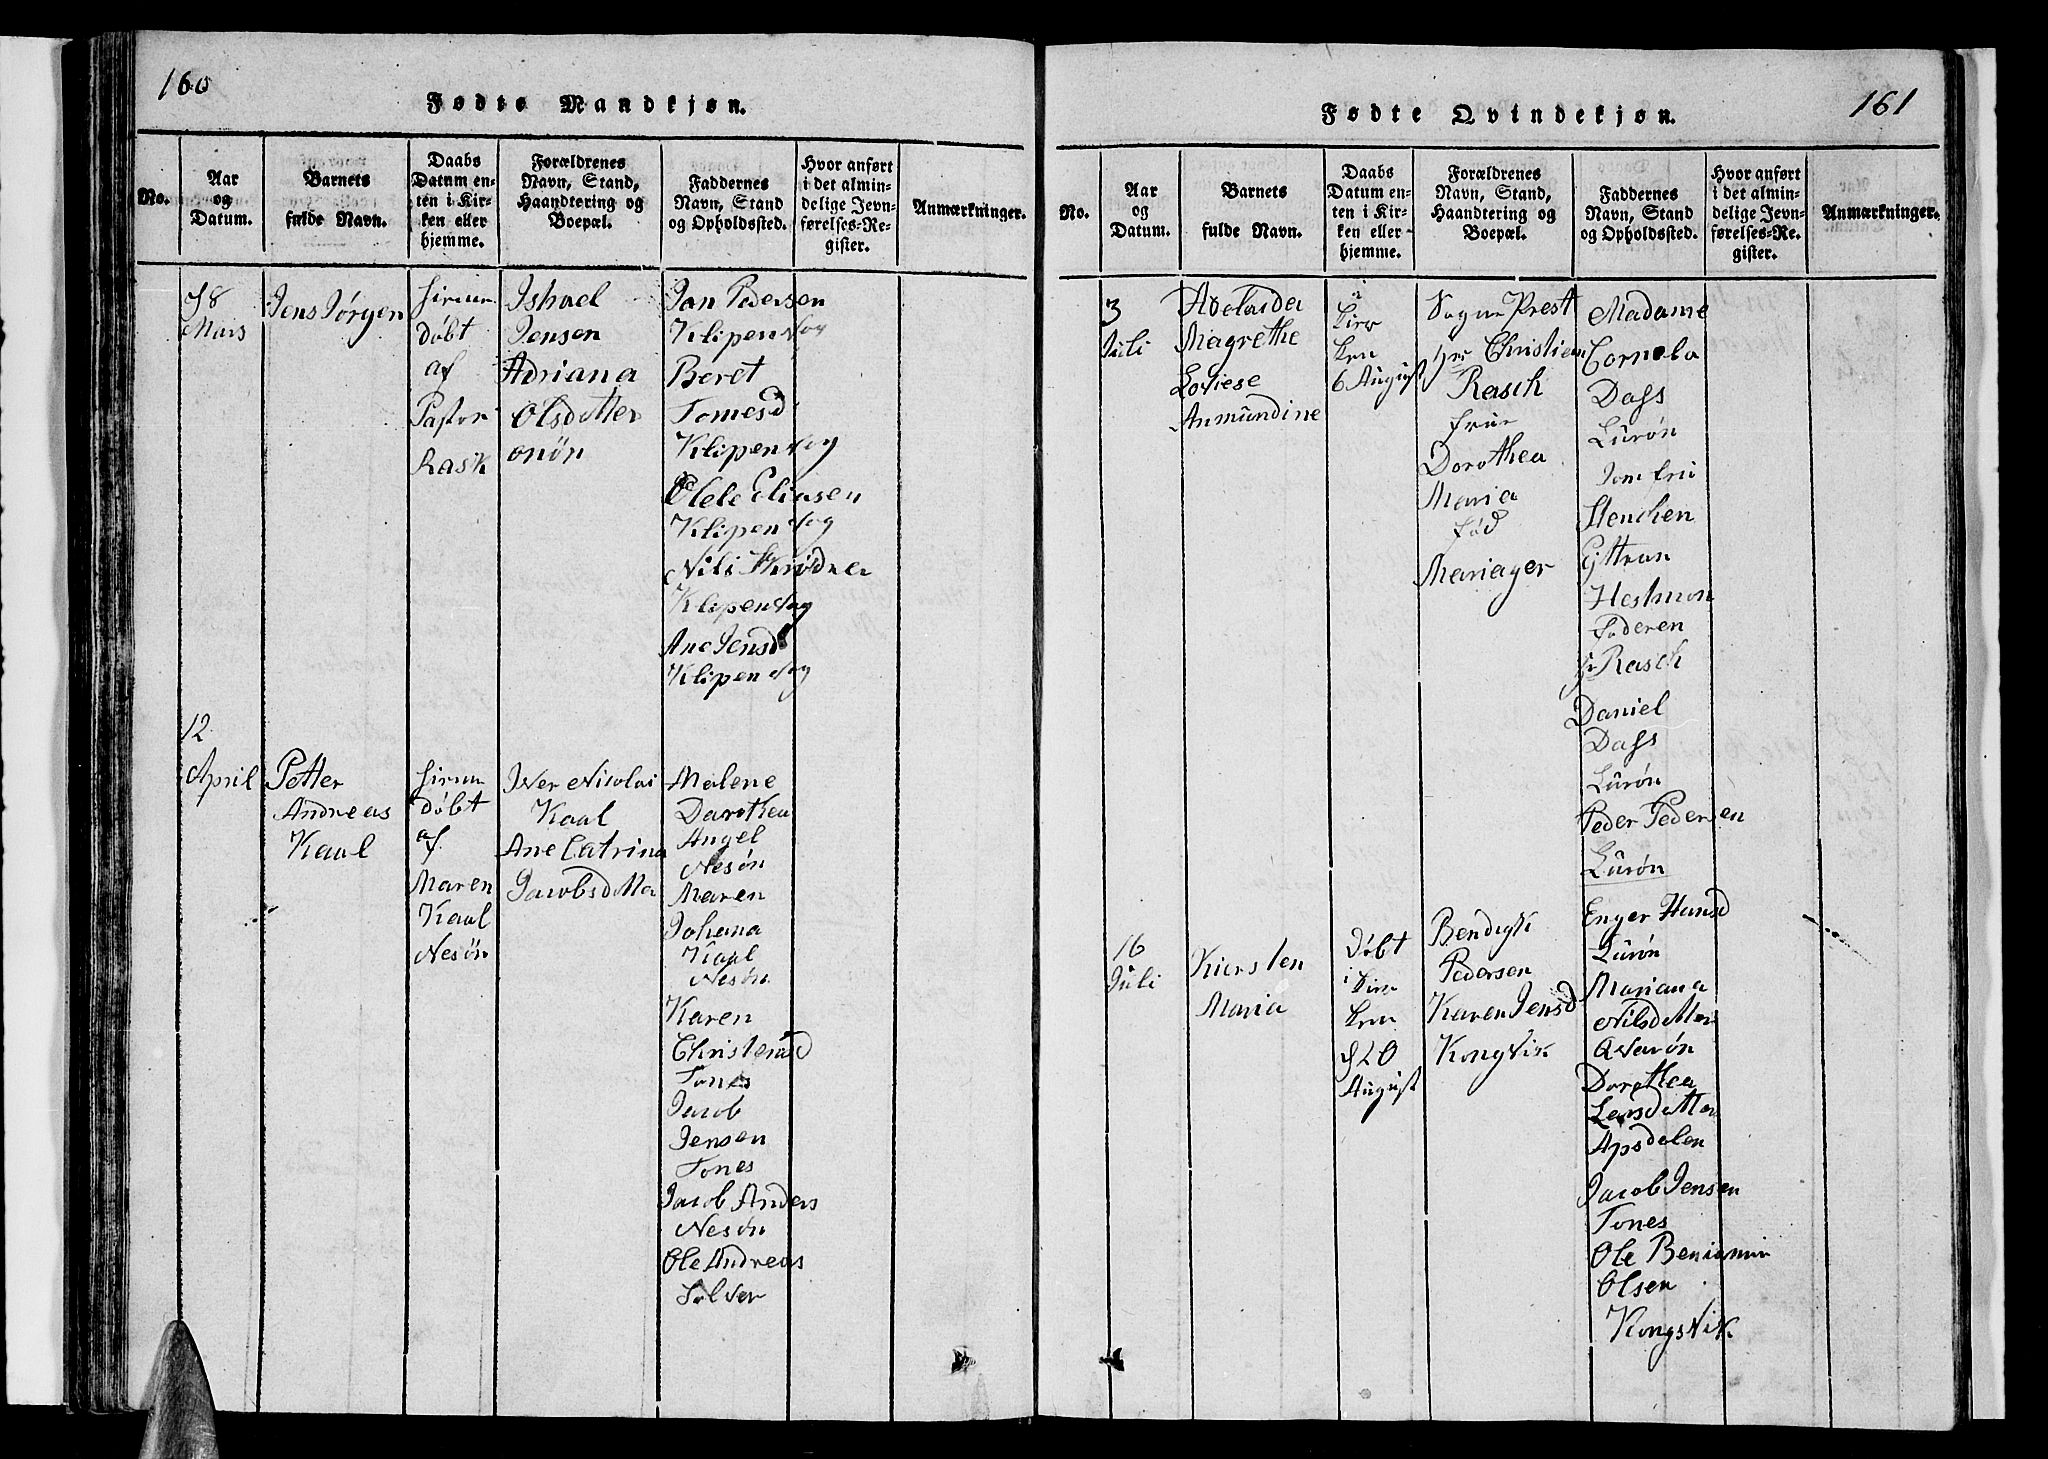 160
Fødte Mandkjøn.
No.
Aar
og
Datum.
Barnets
fulde Navn.
Daabs
Datum en-
ten i Kir-
ken eller
hjemme.
Forældrenes
Navn, Stand,
Haandtering og
Boepæl.
Faddernes
Navn, Stand
og Opholdssted.
Hvor anført
i det almin-
delige Jevn-
førelses-Re-
gister.
Anmærkninger.
Mars
Jens Jørgen
døbt
af
Pastor
Rask
Ishael
Jensen
Adriana
Olsdatter
onøn
Jan Pedersen
Klipenvog
Beret
Tomesd
Klipenvog
Pele Eliasen
Klipenvog
Klipenvog
Ane Jensd
Klipenvog
12
April
Petter
Andreas
Kaal
døbt
af
Maren
Kaal
Nesøn
Iver Nicolai
Kaal
Ane Catrina
Jacobsdatter
Malene
Darothea
Angel
Nesøn
Maren
Johana
Kaal
Nesøn
Karen
Tones
Jacob
Jensen
Tones
Jacob Anders
Nesøn
Ole Andreas
Selver
161
Fødte Qvindekjøn.
No.
Aar
og
Datum.
Barnets
fulde Navn.
Daabs
Datum en-
ten i Kir-
ken eller
hjemme.
Forældrenes
Navn, Stand,
Haandtering og
Boepæl.
Faddernes
Navn, Stand
og Opholdssted.
Hvor anført
i det almin-
delige Jevn-
førelses-Re-
gister.
Anmærkninger.
3
Juli
Adelaida
Magrethe
Loviese
Anmundine
i
Kirr
ken
6 August
Sogne Prest
Hr Christian
Rasch
frue
Dorothea
Maria
fød
Mariager
Madame
Cornelia
Dass
Lurøn
Jomfru
Hestmon
Faderen
Hr Rasch
Daniel
Dass
Lurøn
Peder Pedersen
Lurøn
16
Juli
Kiersten
Maria
Døbt
i Kirr
ken
d 20
August
Bendigt
Pedersen
Karen Jensd
Kongsvik
Enger Hansd
Lurøn
Mariana
Nilsdatter
Qvarøn
Dorothea
Lensdatter
Apsdalen
Jacob Jensen
Tones
Ole Beniamin
Olsen
Kongsvik